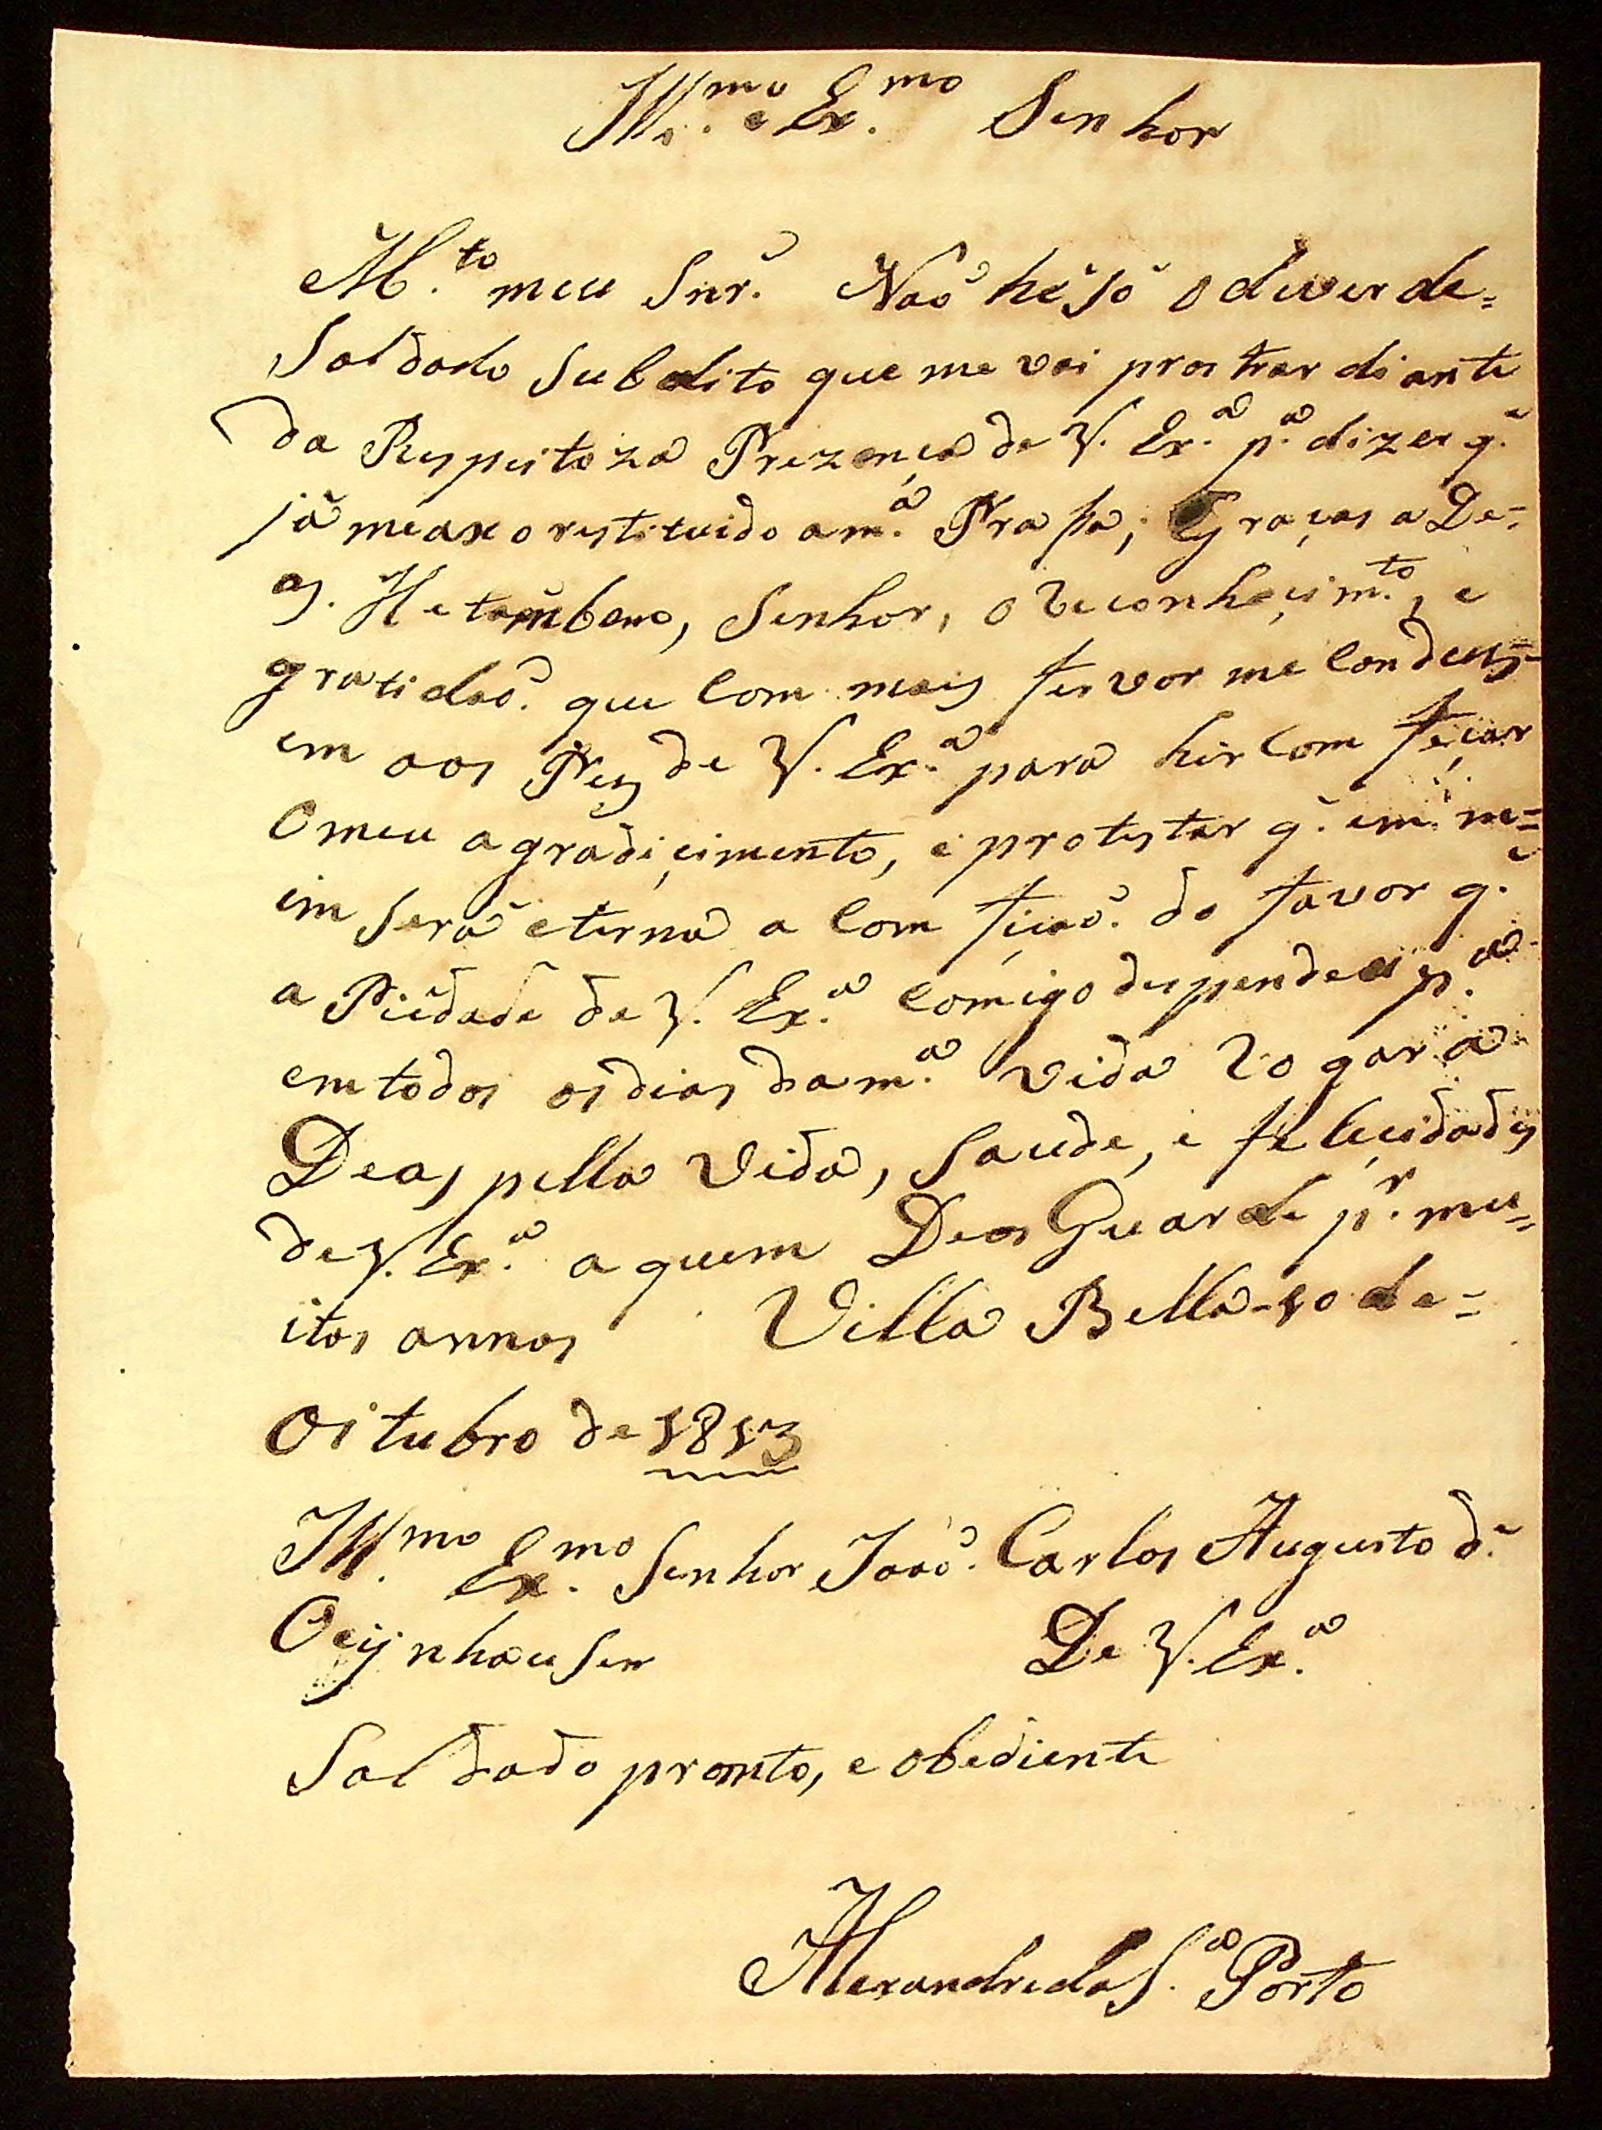 Ill.mo e Ex.mo Senhor
M.to meu Snr. Naõ hé só o dever de=
Soldado Subdito que me vai prostrar diante
da Respeitoza Prezença de V. Ex.a p.a dizer q.
já me axo restituido a m.a Prassa; Graças a De=
os. He tambem, Senhor, o Reconhecim.to, e
gratidaõ. que com mais fervor me condus=
em aos Pes de V. Ex.a para hir comfeçar
O meu agradiçimento, e protestar q. em m=
im será eterna a comfiçaõ. do favor q.
a Piedade de V. Ex.a comigo despendeu p.a
em todos os dias da m.a vida Rogar a
Deos pella vida, Saude, e felicidades
de V. Ex.a a quem Deos Guarde p.r mu=
itos annos Villa Bella 10 de=
Oitubro de 1813
Ill.mo Ex.mo Senhor Joaõ. Carlos Augusto d.
Oeijnhausen De V. Ex.a
Soldado promto, e obediente
Alexandre da S.a Porto